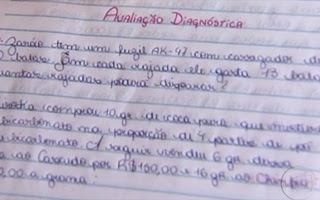 Avaliação Diagnóstica
Zarôio tem um fuzil AK-47 com carregador de
balas. Em cada rajada ele gasta 13 balas
rajadas poderá disparar?
comprou 10 gr de coca pura que misturou
bicarbonato na proporção de 4 partes de pó
bicarbonato. A seguir vendeu 6 gr dessa
ao Cascudo por R$150,00 e 16 gr ao Chinfra
0,00 a grama: